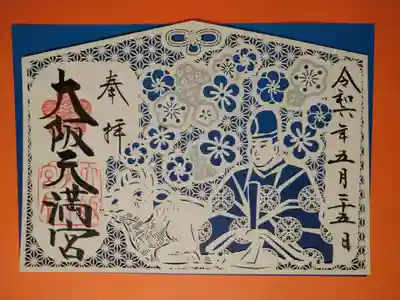 令和六年五月二十五日
奉拝
大阪天満宮